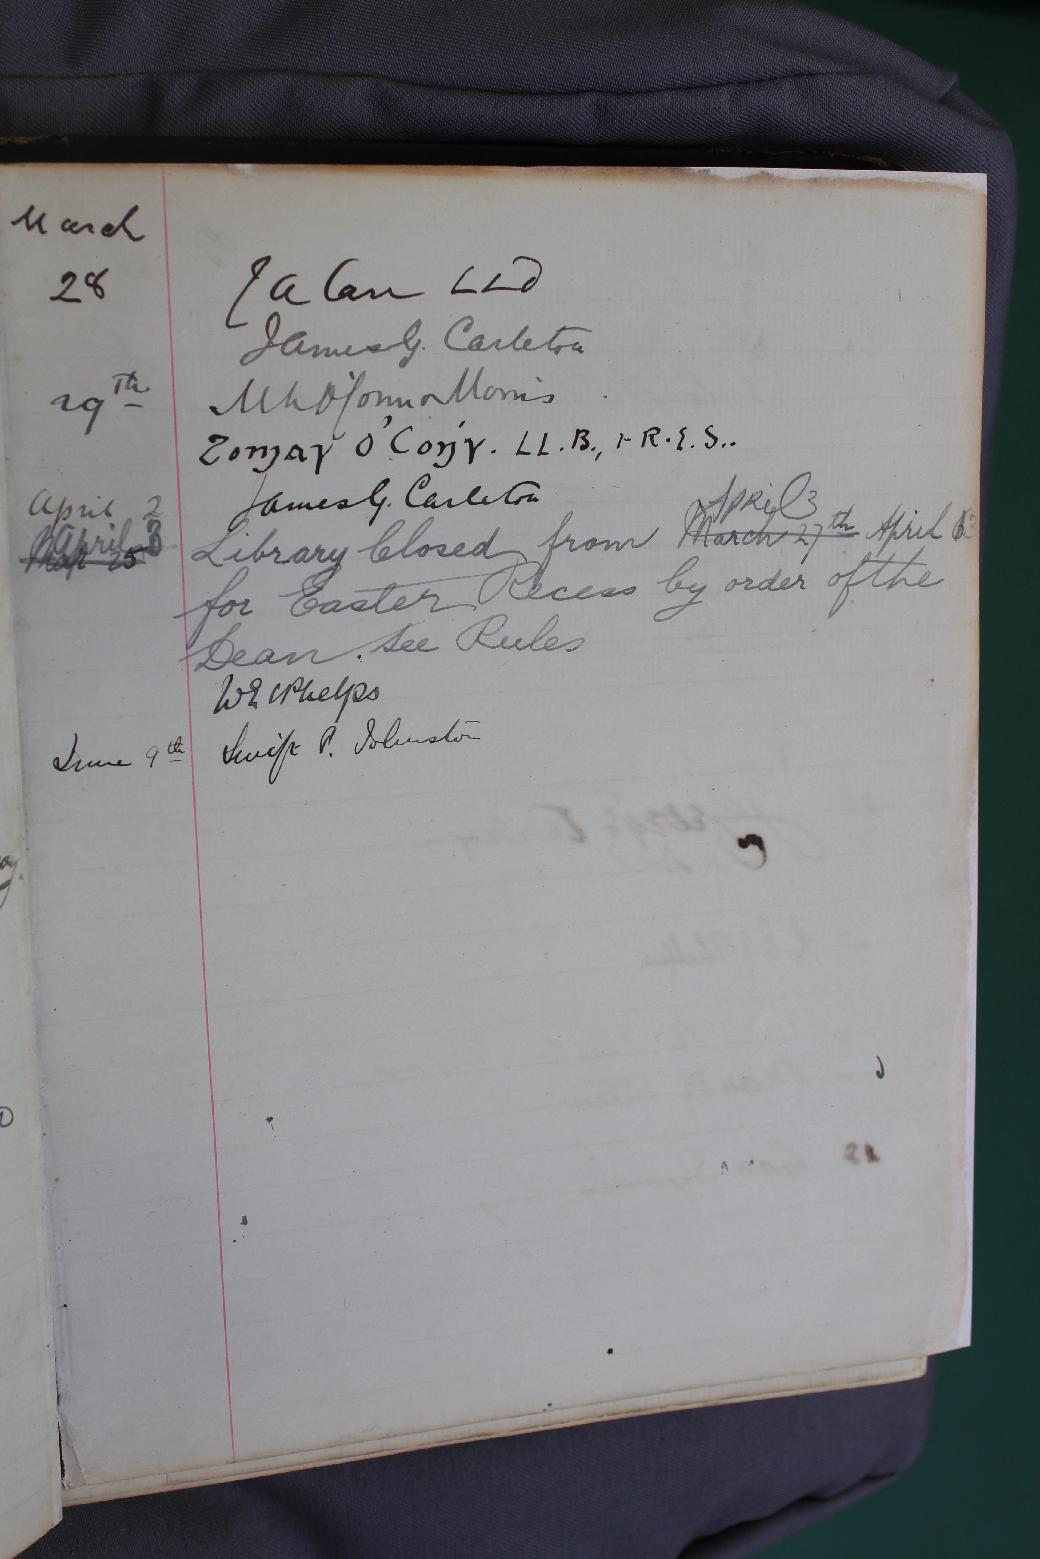 March
28 J A Carr LLD
James G. Carleton
29th M L O'Connor Morris
Tomár O'Conj́r. LL.B., F.R.E.S..
April 2 James G. Carleton
April 3
April 3 Library Closed from March 27th April
for Easter Recess by order of the
Dean. See Rules
W E C Phelps
June 9th Swift P. Johnston